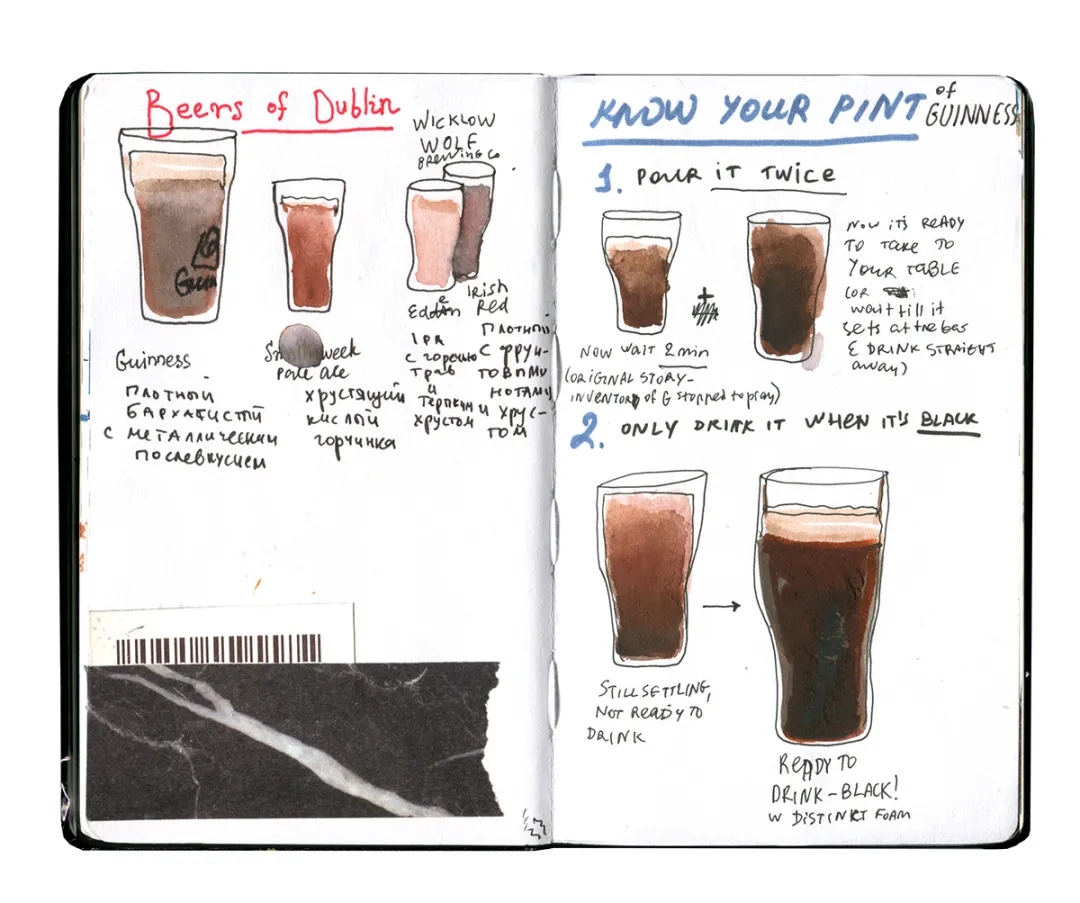 Beers of Dublin
WICKLOW
WOLF
BREWING Co
Guinness
плотный
бархатистый
с металлическим
послевкусием
week
Pale ale
хрустящий
кислый
горчинка
IPA
с горечью
трав
и
терпким
хрустом
Irish
Red
плотный
с фрук-
товыми
нотами
и хрус-
том
KNOW YOUR PINT of
GUINNESS
1. POUR IT TWICE
NOW WAIT 2 min
(ORIGINAL STORY-
INVENTOR of G stopped to pray)
NOW IT'S READY
TO TAKE TO
YOUR TABLE
(OR
wait till it
sets at the
& DRINK STRAIGHT
away)
2. ONLY DRINK IT WHEN IT'S BLACK
STILL SETTLING,
NOT READY TO
DRINK
READY TO
DRINK-BLACK!
W DISTINKT FOAM